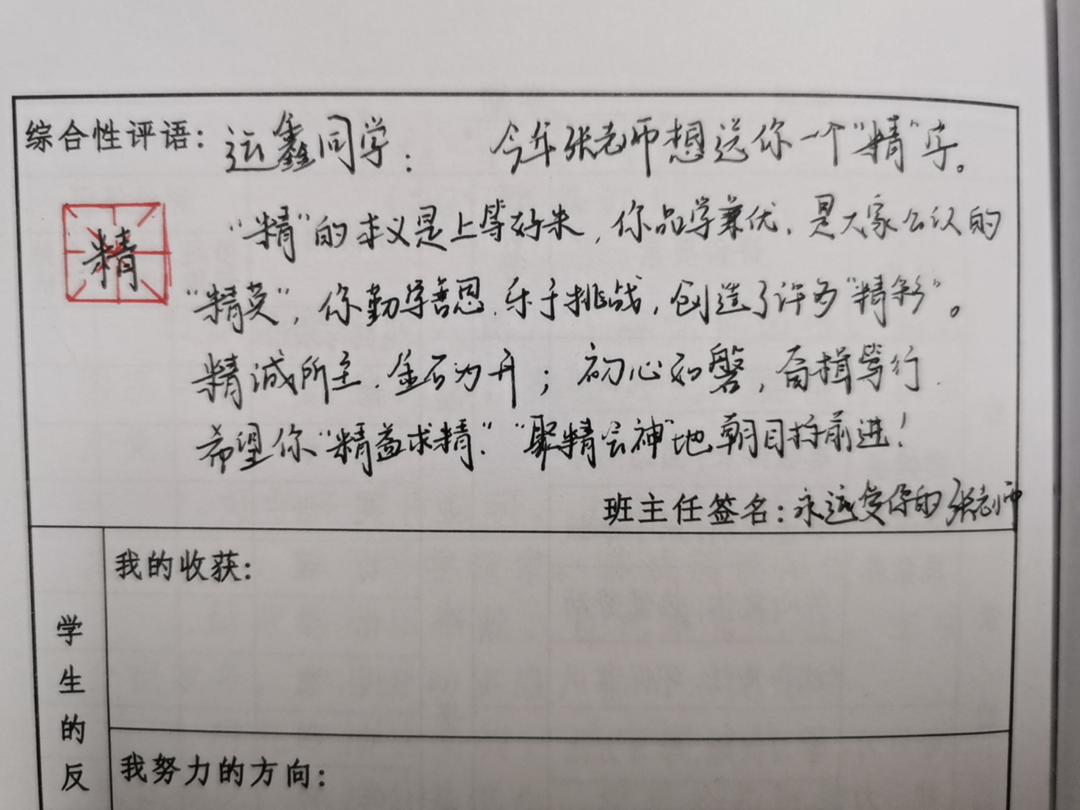 综合性评语：运鑫同学： 今年张老师想送你一个“精”字。
精
“精”的本义是上等好米，你品学兼优，是大家公认的
“精英”，你勤学善思，乐于挑战，创造了许多“精彩”。
精诚所至，金石为开；初心如磐，奋楫笃行.
希望你“精益求精”“聚精会神”地朝目标前进！
班主任签名：永远爱你的张老师
学生的反
我的收获：
我努力的方向：